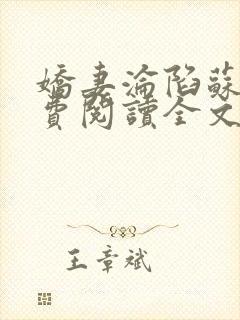 嬌妻淪陷蘇
費閱讀全文
王章斌